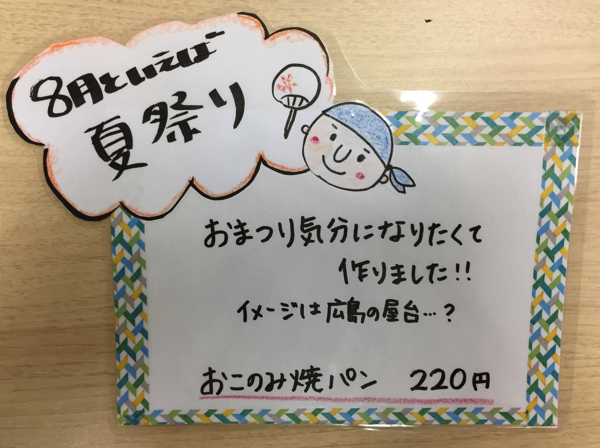 8月といえば
夏祭り
おまつり気分になりたくて
作りました!!
イメージは広島の屋台…?
おこのみ焼パン 220円